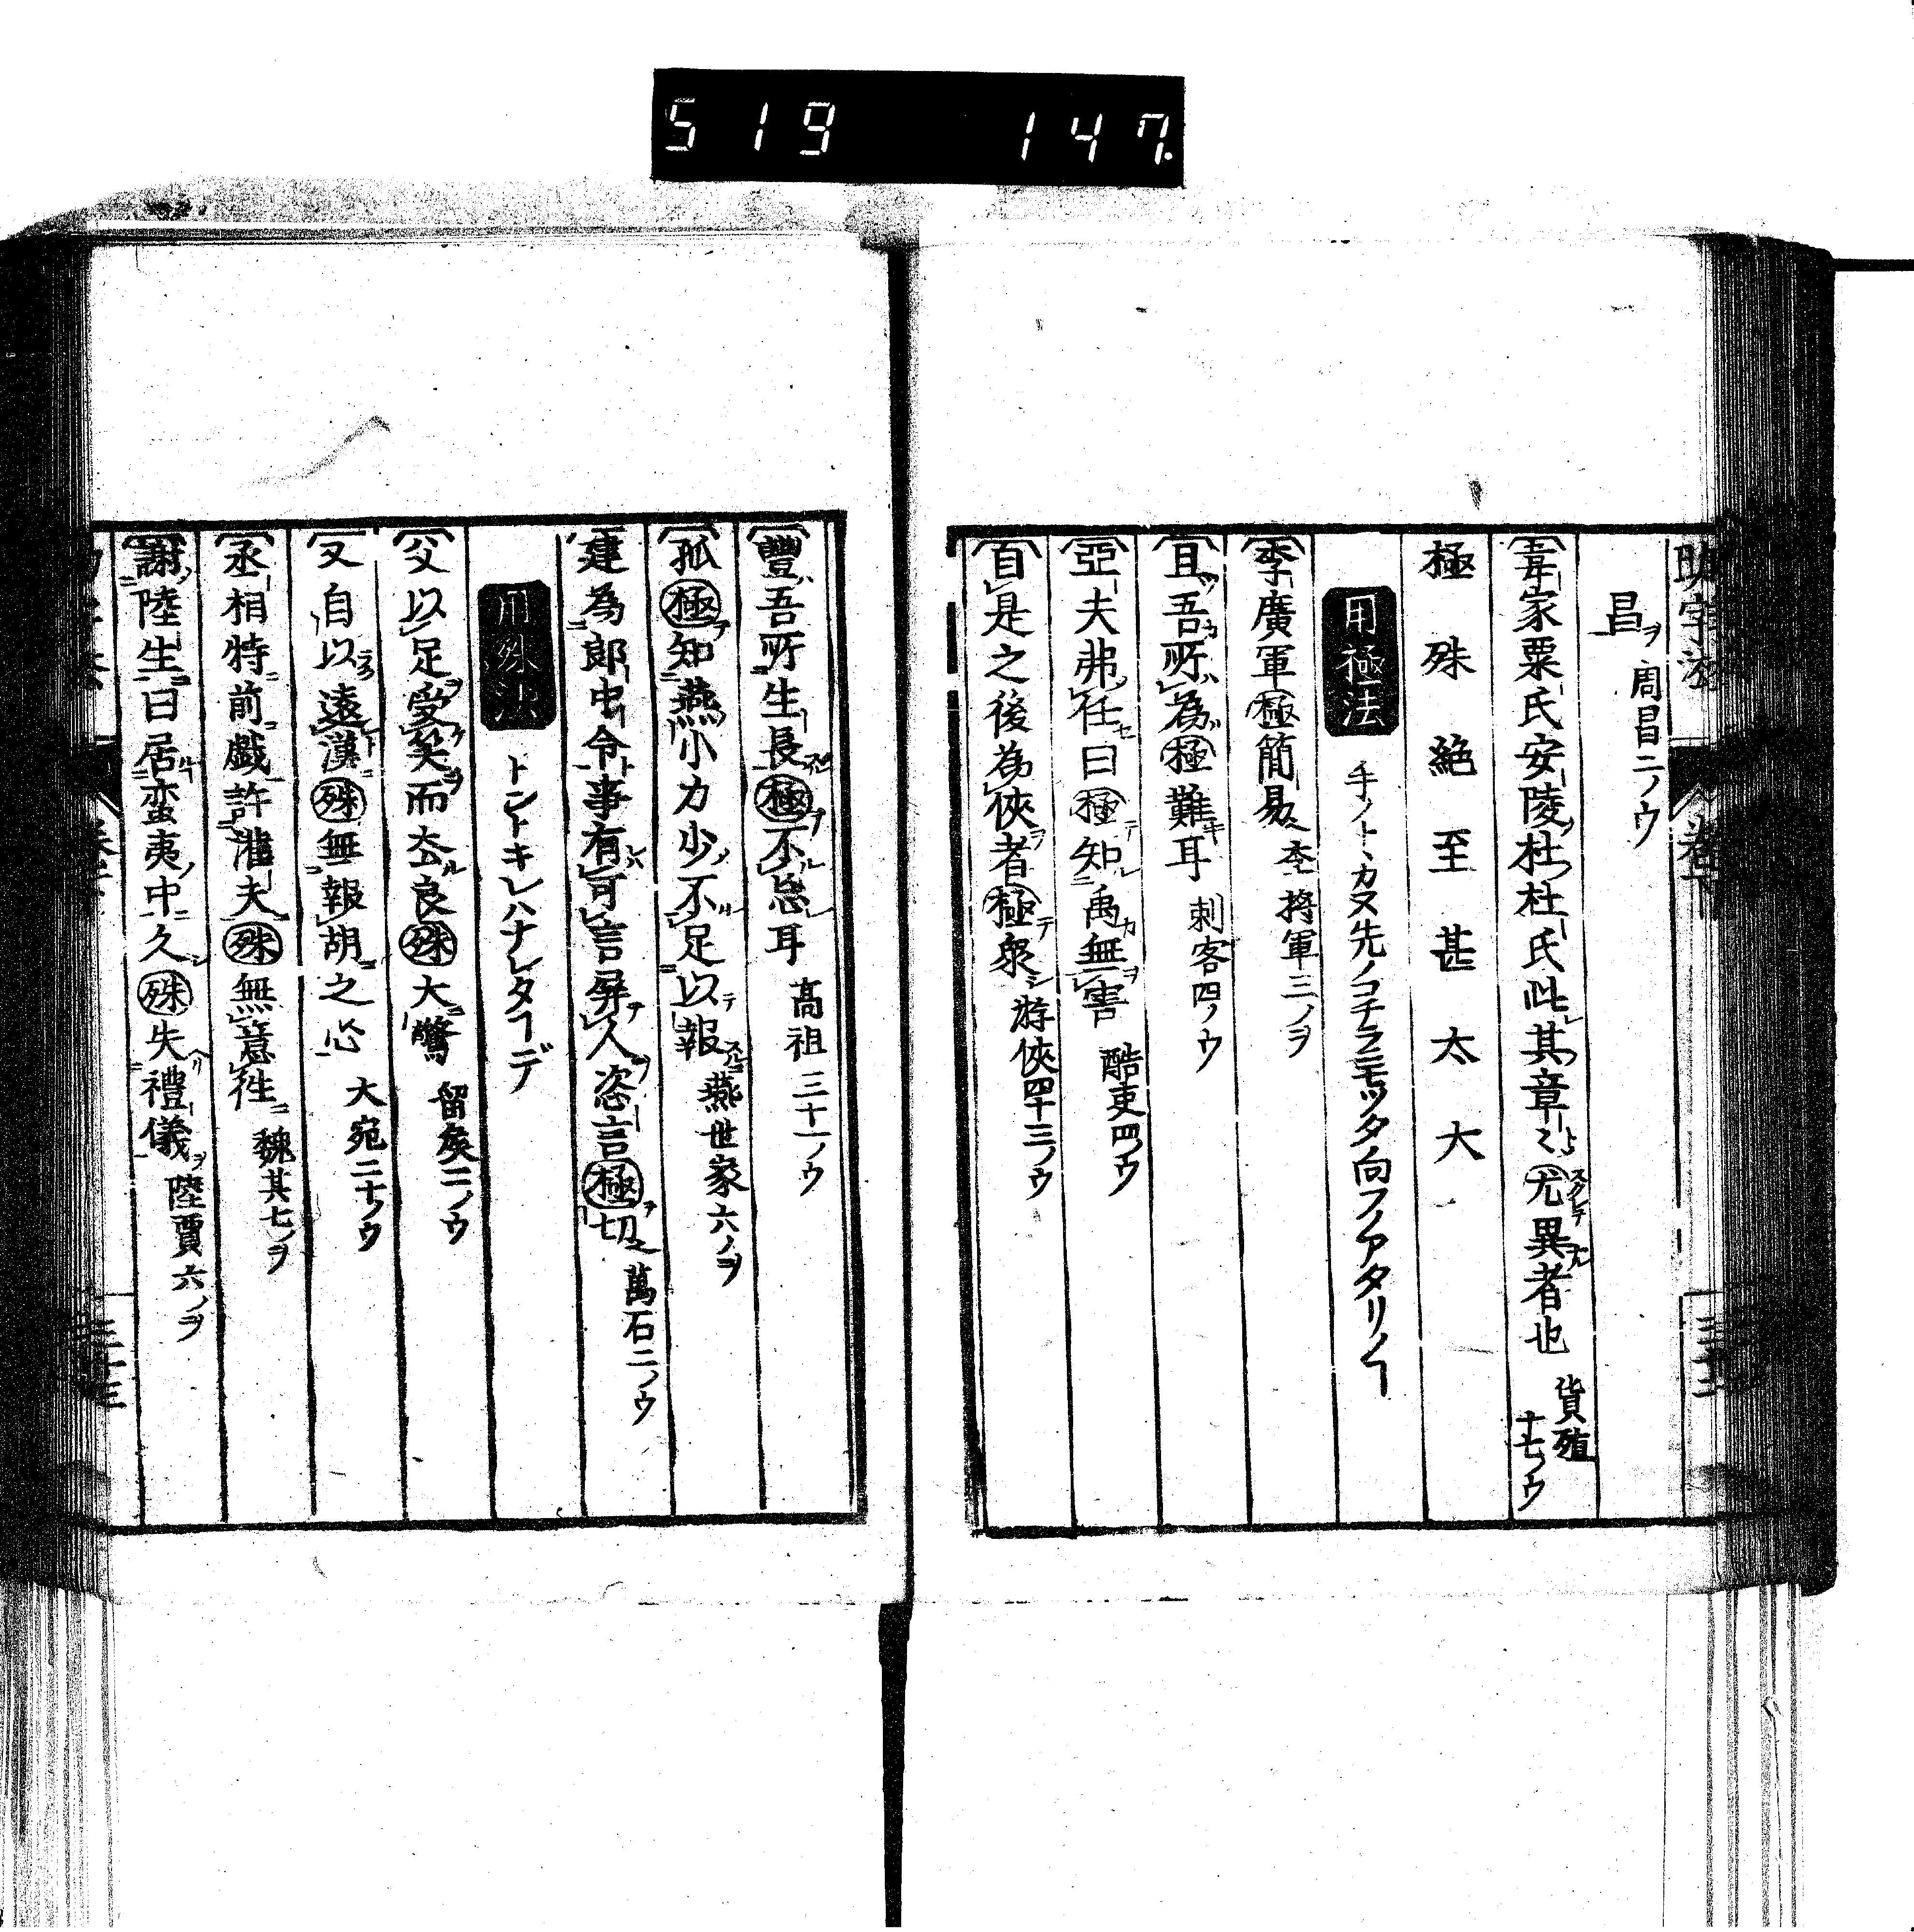 519 147
助字法 卷下 三十二
昌ヲ 周昌二ノウ
韋家栗氏安陵ノ杜杜氏此レ其章〻 尤異者也 貨殖十七ノウ
極 殊 絶 至 甚 太 大
用極法 手ノトヽカヌ先ノコチラニモツタ向フノアタリノヿ
李廣軍極簡易 李將軍三ノヲ
且吾所為極難耳 刺客四ノウ
亞夫弗任曰極知禹無害 酷吏四ノウ
自是之後為俠者極衆 游俠四十三ノウ
豐吾所生長極不忘耳 高祖三十一ノウ
孤極知燕小力少不足以報 燕世家六ノヲ
建為郎中令事有可言屏人恣言極切 萬石二ノウ
用殊法 トントキレハナレタヿデ
父以足受笑而去良殊大驚 留矦二ノウ
又自以遠漢殊無報胡之心 大宛二十ノウ
丞相特前戯許灌夫殊無意往 魏其七ノヲ
謝陸生曰居蛮夷中久殊失禮儀 陸賈六ノヲ
三十三